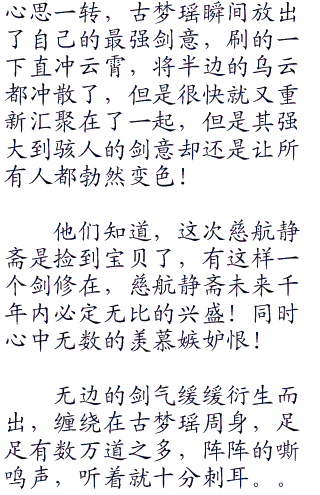 心思一转，古梦瑶瞬间放出
了自己的最强剑意，刷的一
下直冲云霄，将半边的乌云
都冲散了，但是很快就又重
新汇聚在了一起，但是其强
大到骇人的剑意却还是让所
有人都勃然变色！
他们知道，这次慈航静
斋是捡到宝贝了，有这样一
个剑修在，慈航静斋未来千
年内必定无比的兴盛！同时
心中无数的羡慕嫉妒恨！
无边的剑气缓缓衍生而
出，缠绕在古梦瑶周身，足
足有数万道之多，阵阵的嘶
鸣声，听着就十分刺耳。。